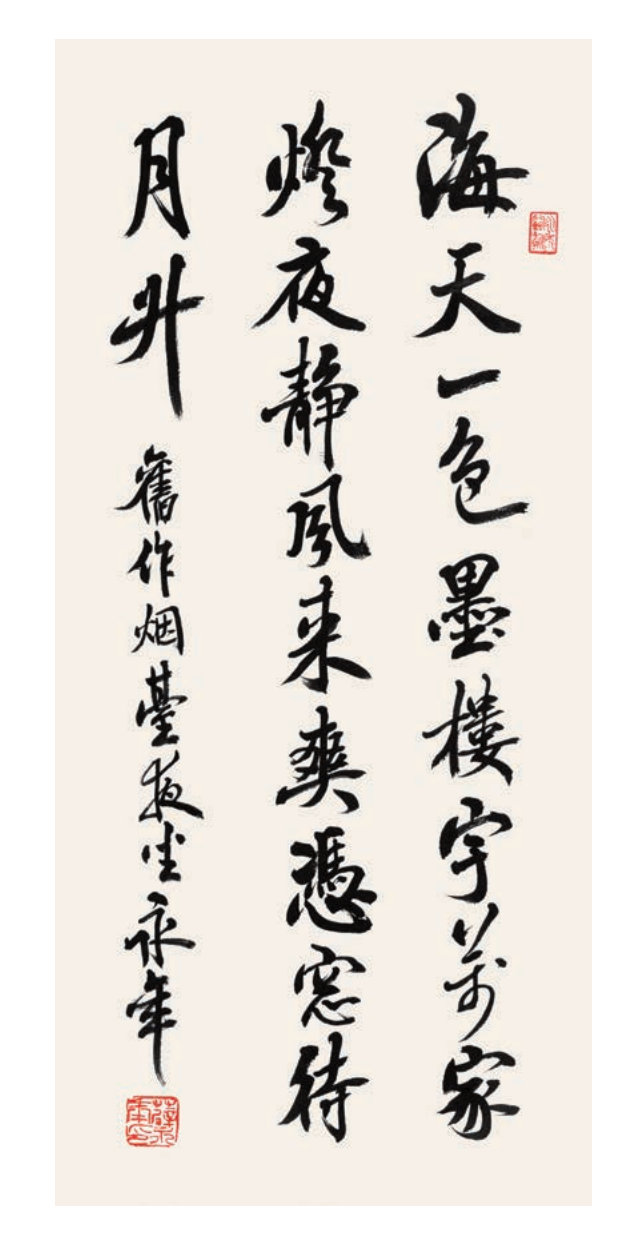 海天一色墨樓宇萬家
燈夜靜風來爽憑窓待
月升
舊作烟臺夜坐永年